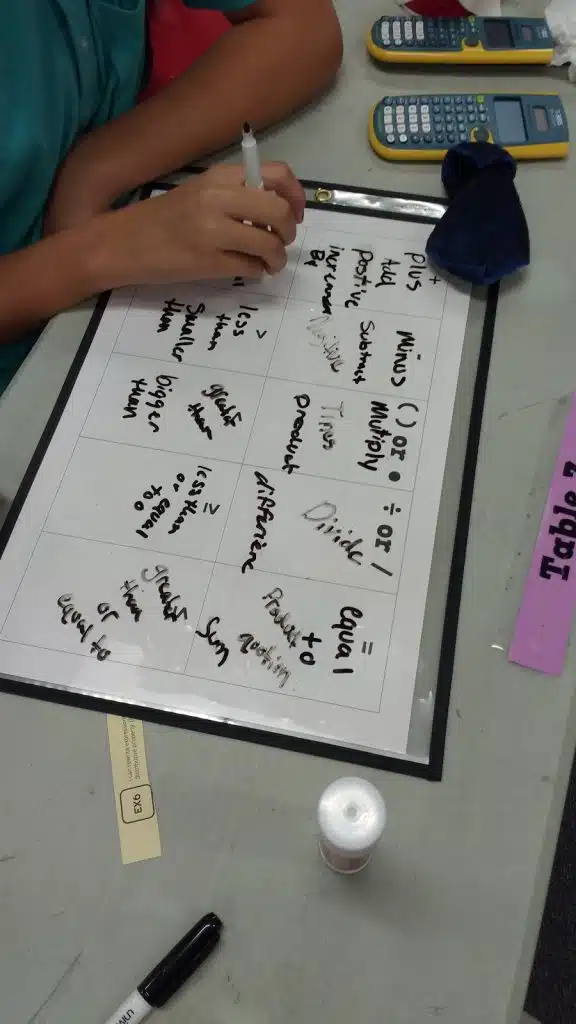 +
plus
Add
Positive
By
-
Minus
Subtract
( ) or •
Multiply
Times
product
÷ or /
Divide
difference
=
equal
to
Product
quotion
Sum
less
than
smaller
then
bigger
than
less than
or equal
to
or
equal to
Table 7
EX6